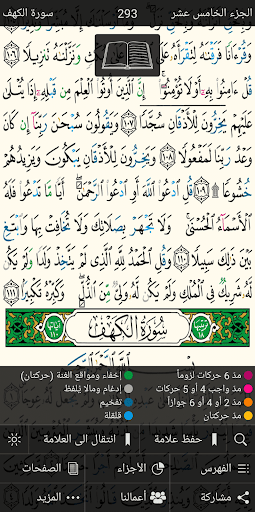 الجزء الخامس عشر 293 سورة الكهف
وَقُرْءَانًا فَرَقْنَٰهُ لِتَقْرَأَهُۥ عَلَى ٱلنَّاسِ عَلَىٰ مُكْثٍ وَنَزَّلْنَٰهُ تَنزِيلًا ١٠٦
قُلْ ءَامِنُوا۟ بِهِۦٓ أَوْ لَا تُؤْمِنُوٓا۟ إِنَّ ٱلَّذِينَ أُوتُوا۟ ٱلْعِلْمَ مِن قَبْلِهِۦٓ إِذَا يُتْلَىٰ
عَلَيْهِمْ يَخِرُّونَ لِلْأَذْقَانِ سُجَّدًا ١٠٧ وَيَقُولُونَ سُبْحَٰنَ رَبِّنَآ إِن كَانَ
وَعْدُ رَبِّنَا لَمَفْعُولًا ١٠٨ وَيَخِرُّونَ لِلْأَذْقَانِ يَبْكُونَ وَيَزِيدُهُمْ
خُشُوعًا ١٠٩ قُلِ ٱدْعُوا۟ ٱللَّهَ أَوِ ٱدْعُوا۟ ٱلرَّحْمَٰنَ أَيًّا مَّا تَدْعُوا۟ فَلَهُ
ٱلْأَسْمَآءُ ٱلْحُسْنَىٰ وَلَا تَجْهَرْ بِصَلَاتِكَ وَلَا تُخَافِتْ بِهَا وَٱبْتَغِ
بَيْنَ ذَٰلِكَ سَبِيلًا ١١٠ وَقُلِ ٱلْحَمْدُ لِلَّهِ ٱلَّذِى لَمْ يَتَّخِذْ وَلَدًا وَلَمْ يَكُن
لَّهُۥ شَرِيكٌ فِى ٱلْمُلْكِ وَلَمْ يَكُن لَّهُۥ وَلِىٌّ مِّنَ ٱلذُّلِّ وَكَبِّرْهُ تَكْبِيرًۢا ١١١
ترتيبها ١٨ سُورَةُ الكَهْفِ آياتها ١١٠
مدّ 6 حركات لزوماً إخفاء ومواقع الغنة (حركتان)
مدّ واجب 4 أو 5 حركات إدغام ومالا يُلفظ
مدّ 2 أو 4 أو 6 جوازاً تفخيم
مدّ حركتان قلقلة
حفظ علامة انتقال إلى العلامة
الفهرس الأجزاء الصفحات
مشاركة أعمالنا المزيد